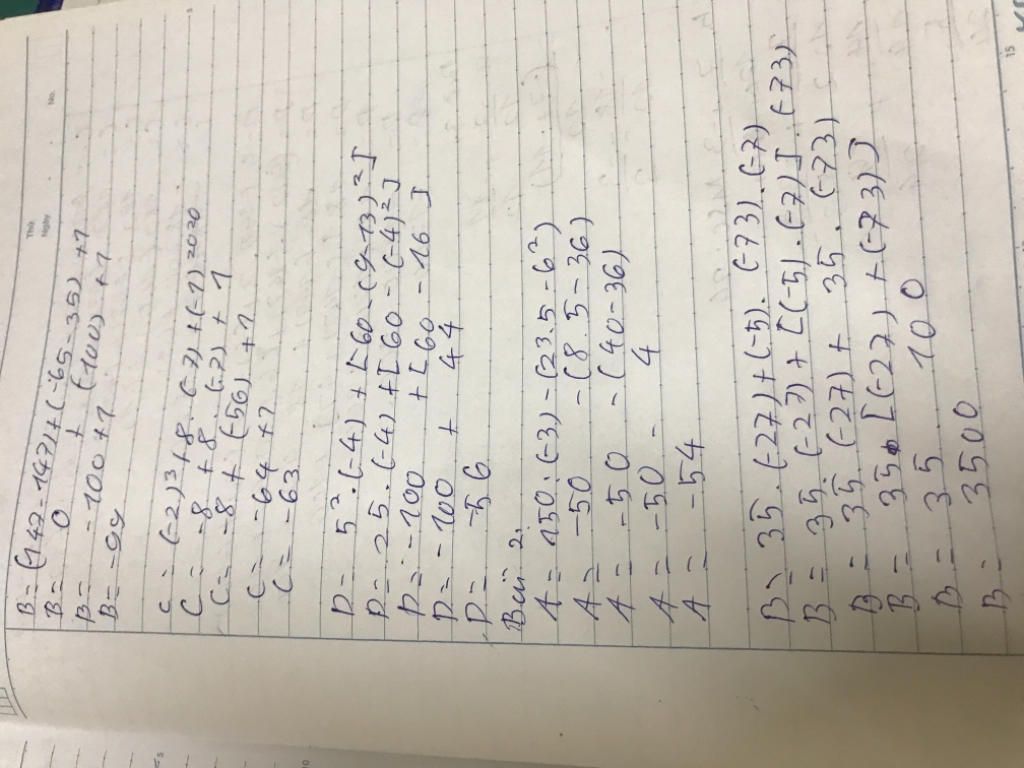 Thứ
Ngày
No.
B = (147 - 147) + (-65 - 35) + 1
B = 0 + (-100) + 1
B = -100 + 1
B = -99
C = (-2)³ + 8 . (-7) + (-1)²⁰²⁰
C = -8 + 8 . (-7) + 1
C = -8 + (-56) + 1
C = -64 + 1
C = -63
D = 5² . (-4) + [60 - (9 - 13)²]
D = 25 . (-4) + [60 - (-4)²]
D = -100 + [60 - 16]
D = -100 + 44
D = -56
Bài 2.
A = 150 : (-3) - (2³.5 - 6²)
A = -50 - (8.5 - 36)
A = -50 - (40 - 36)
A = -50 - 4
A = -54
B = 35 . (-27) + (-5) . (-73) . (-7)
B = 35 . (-27) + [(-5) . (-7)] . (-73)
B = 35 . (-27) + 35 . (-73)
B = 35 . [(-27) + (-73)]
B = 35 100
B = 3500
15